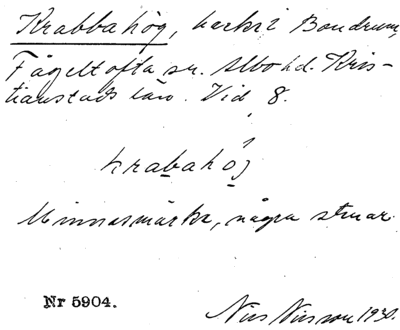 Krabbahög, backe i Bondrum,
Fågeltofta sn. Albo hd. Kris-
tianstads län. Vid 8.
krabahög
Minnesmärke, några stenar
Nr 5904.
Nils Nilsson 1930.